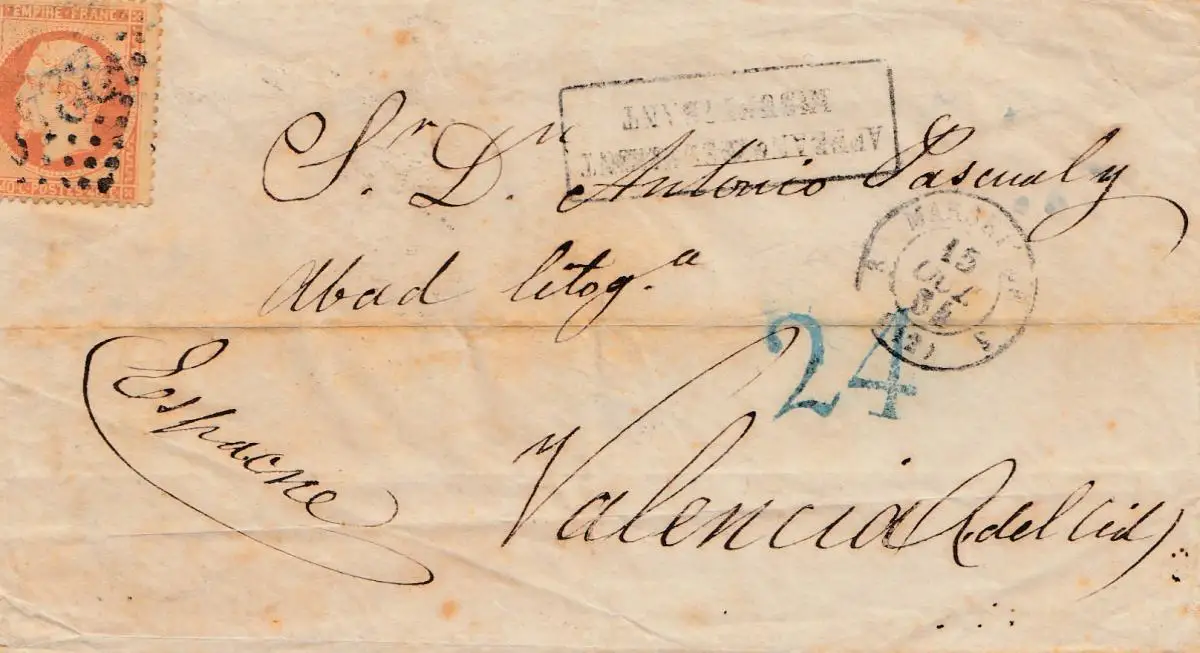 EMPIRE FRANC
40 C. POSTES 40 C.
AFFRANCHISSEMENT
INSUFFISANT
Sr. Dn. Antonio Pascual y
Abad litog.a
MARSEILLE
15
(12)
24
Espagne
Valencia (del Cid)